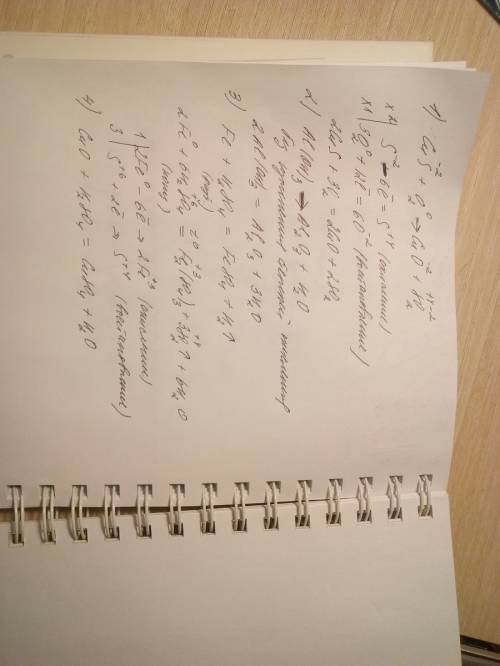 1) CuS⁻² + O₂⁰ → CuO⁻² + S⁺⁴O₂⁻²
x2| S⁻² - 6ē = S⁺⁴ (окисление)
x1| 3O₂⁰ + 12ē = 6O⁻² (восстановление)
2CuS + 3O₂ = 2CuO + 2SO₂
2) Al(OH)₃ → Al₂O₃ + H₂O
без изменения степеней окисления
2Al(OH)₃ = Al₂O₃ + 3H₂O
3) Fe + H₂SO₄ = FeSO₄ + H₂↑
(разб)
2Fe⁰ + 6H₂S⁺⁶O₄ = Fe₂⁺³(SO₄)₃ + 3S⁺⁴O₂↑ + 6H₂O
(конц)
1| 2Fe⁰ - 6ē → 2Fe⁺³ (окисление)
3| S⁺⁶ + 2ē → S⁺⁴ (восстановление)
4) CuO + H₂SO₄ = CuSO₄ + H₂O